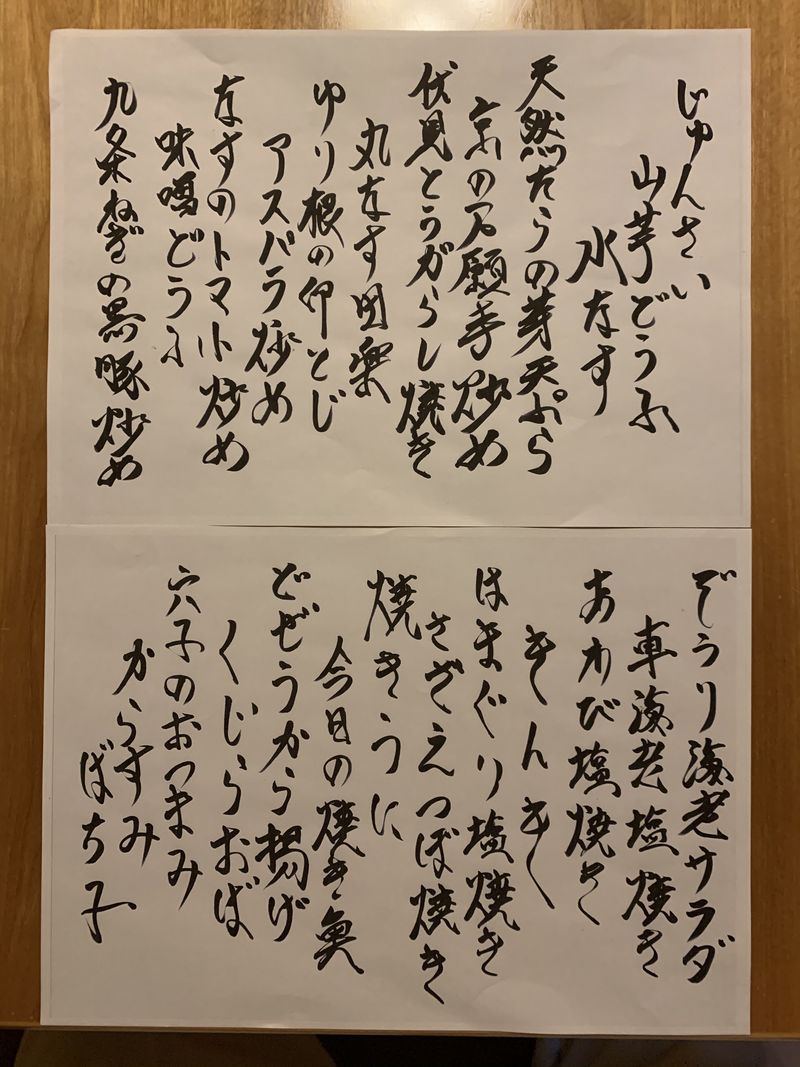 じゅんさい
山芋どうふ
水なす
天然たらの芽天ぷら
京の万願寺炒め
伏見とうがらし焼き
丸なす田楽
ゆり根の卵とじ
アスパラ炒め
なすのトマト炒め
味噌どうふ
九条ねぎの黒豚炒め
ぞうり海老サラダ
車海老塩焼き
あわび塩焼き
きんき
はまぐり塩焼き
さざえつぼ焼き
焼きうに
今日の焼き魚
どぜうから揚げ
くじらおば
穴子のおつまみ
からすみ
ばち子